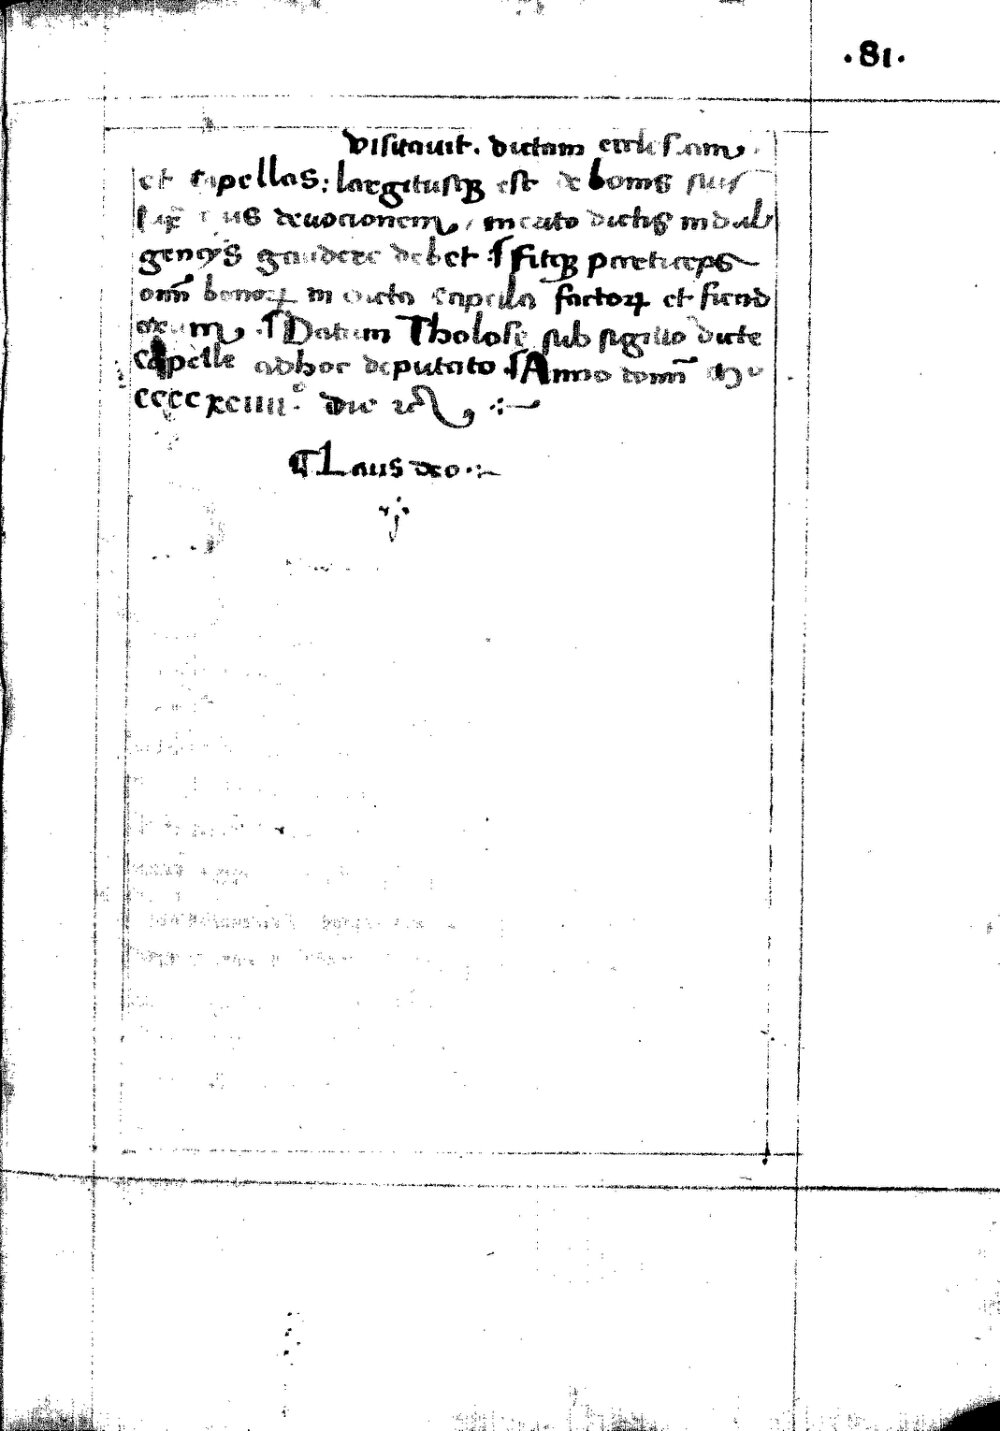 ·81·
visitauit. dictam ecclesiam
et capellas: largitusqꝫ est de bonis suis
eius deuocionem, merito dictis indul
gencijs gaudere debet ¶ fitqꝫ particeps
oĩm bonoꝝ in dicta capella factoꝝ et fiend
orum. ¶ Datum Tholose sub sigillo dicte
capelle adhoc deputato ¶ Anno domĩ
ccccxciiii° die
¶ Laus deo